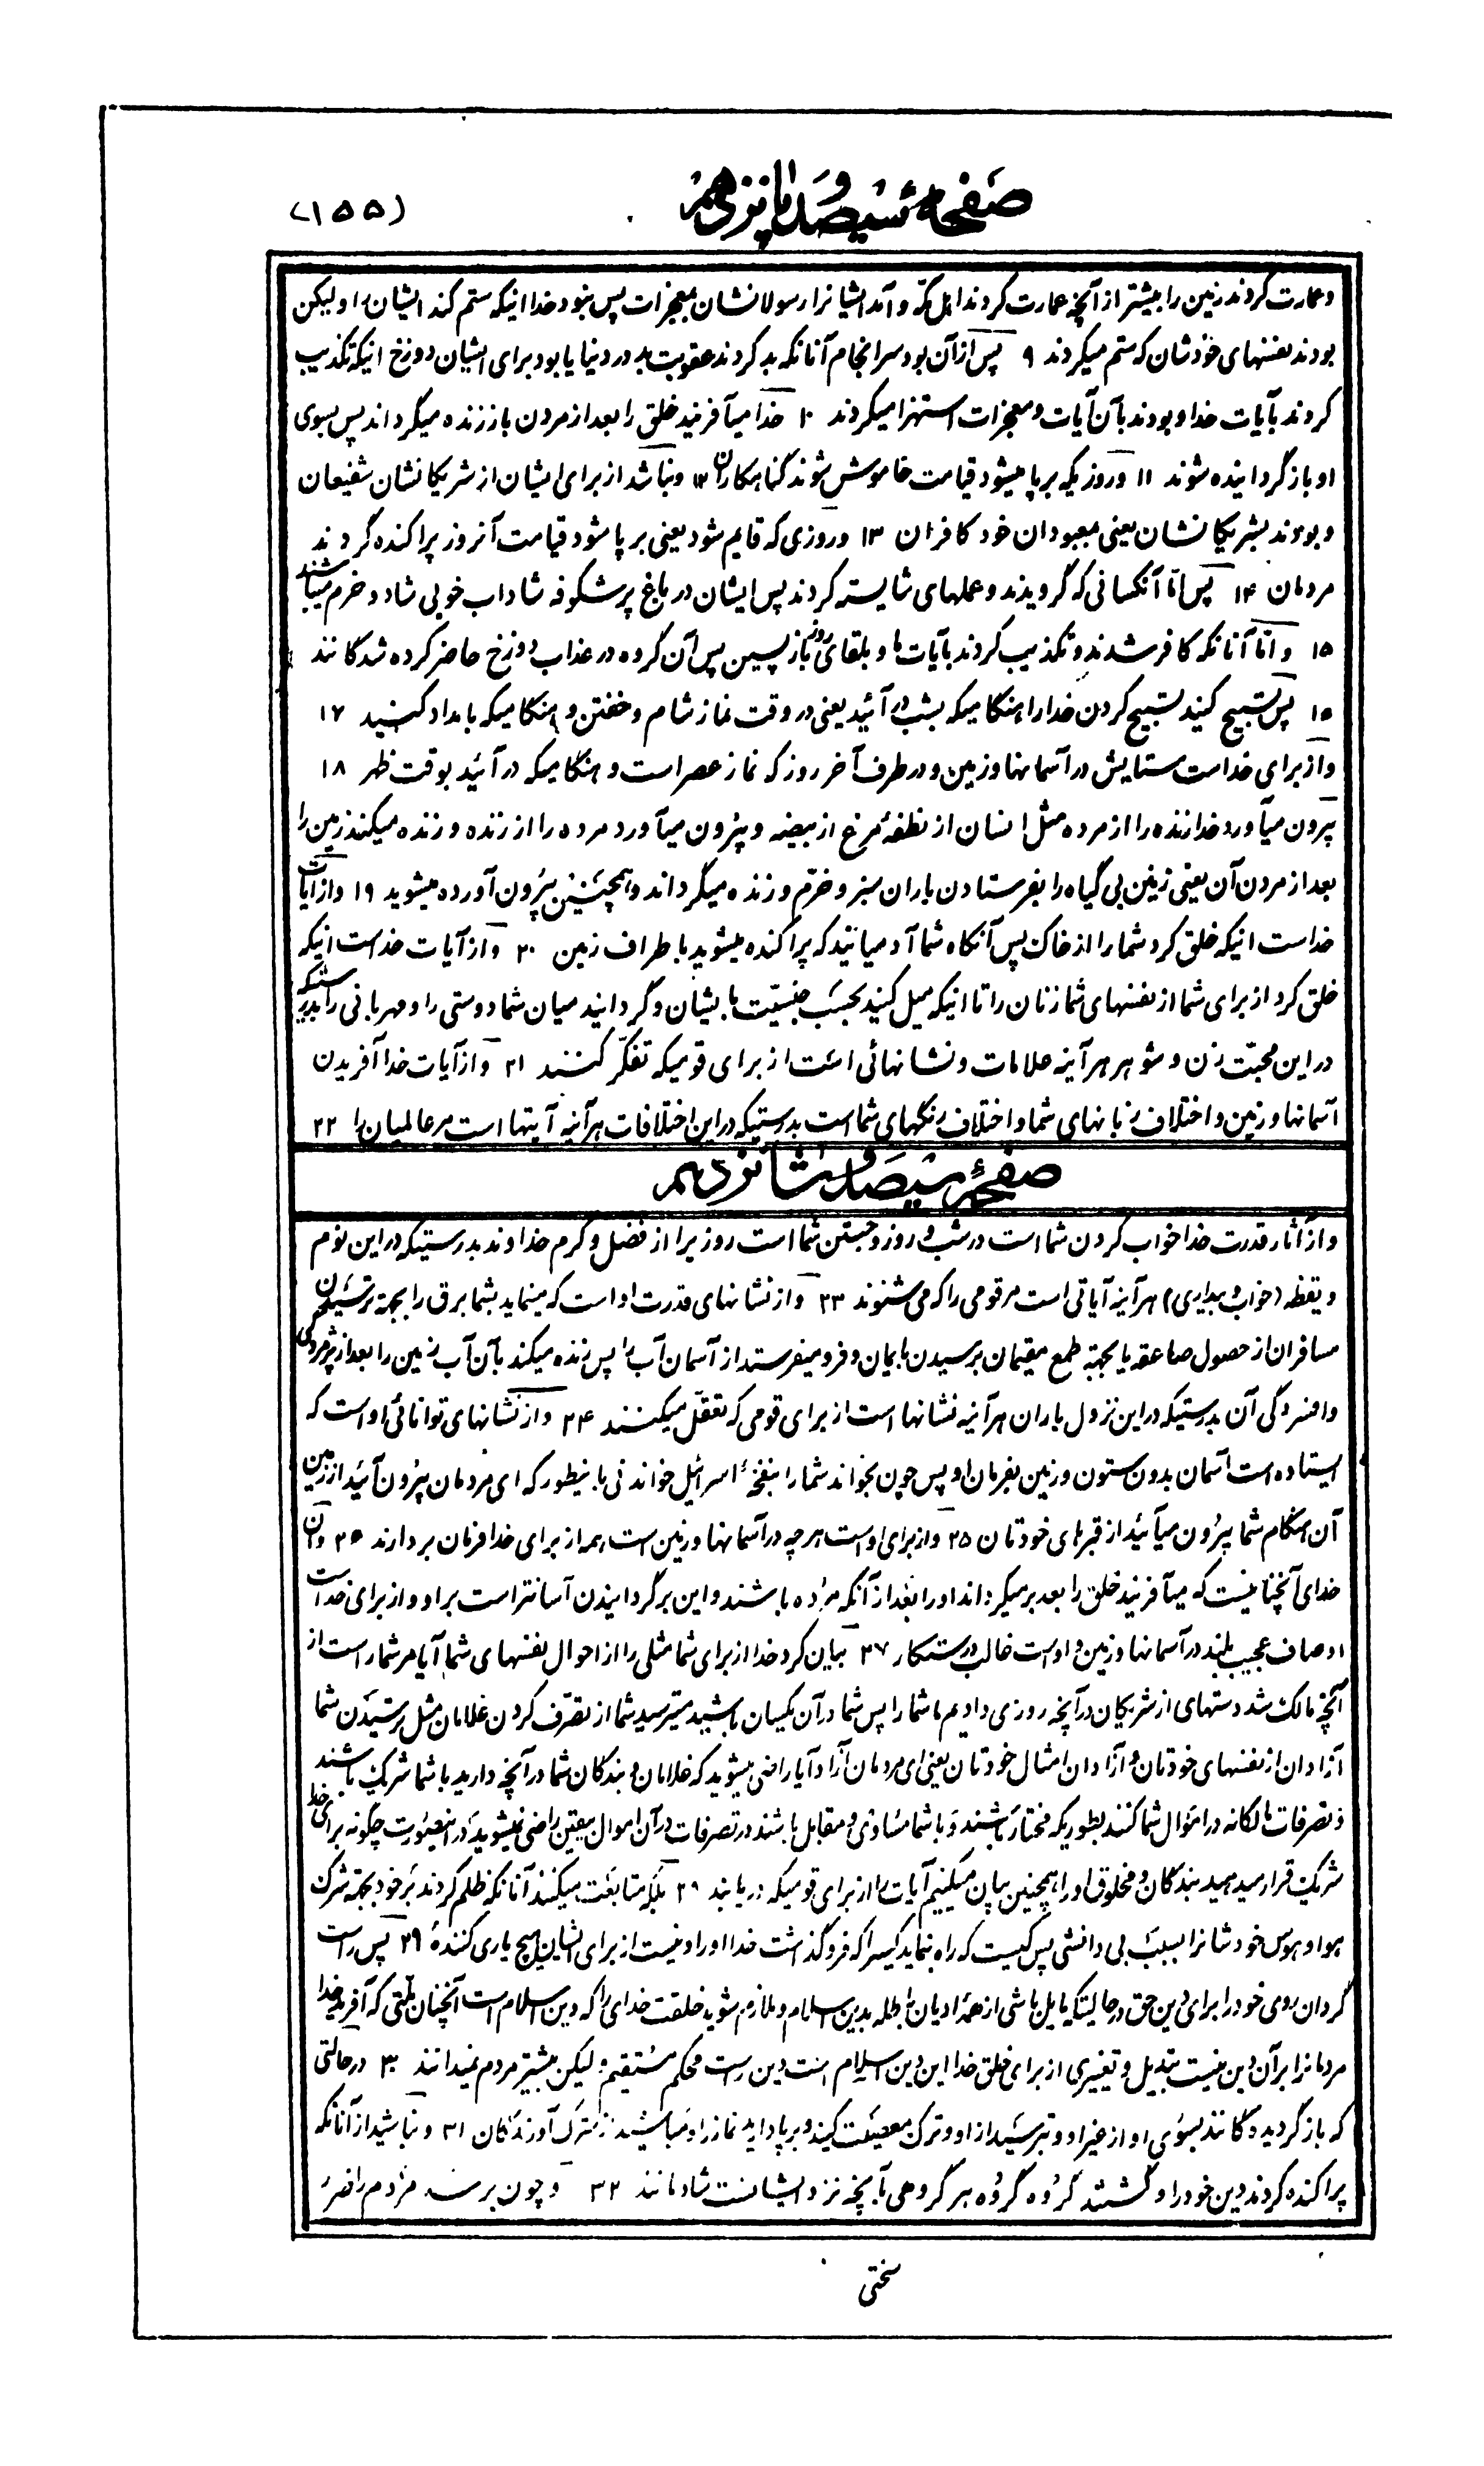 صفحهٔ سیصد و پانزدهم
(۱۵۵)
و عمارت کردند زمین را بیشتر از آنچه عمارت کردند اهل مکّه و آمد ایشانرا رسولانشان بمعجزات پس نبود خدا اینکه ستم کند ایشان را و لیکن
بودند بنفسهای خودشان که ستم میکردند ۹ پس از آن بود سرانجام آنانکه بد کردند عقوبت بد در دنیا یا بود برای ایشان دوزخ اینکه تکذیب
کردند بآیات خدا و بودند بآن آیات و معجزات استهزا میکردند ۱۰ خدا میآفریند خلق را بعد از مردن باز زنده میگرداند پس بسوی
او بازگردانیده شوند ۱۱ و روزیکه برپا میشود قیامت خاموش شوند گناهکاران ۱۲ و نباشد از برای ایشان از شریکانشان شفیعان
و بودند بشریکانشان یعنی معبودان خود کافران ۱۳ و روزی که قایم شود یعنی برپا شود قیامت آنروز پراکنده گردند
مردمان ۱۴ پس امّا آنکسانی که گرویدند و عملهای شایسته کردند پس ایشان در باغ پرشکوفه شاداب خوبی شاد و خرم میباشند
۱۵ و امّا آنانکه کافر شدند و تکذیب کردند بآیات ما و بلقای روز بازپسین پس آن گروه در عذاب دوزخ حاضر کرده شدگانند
۱۵ پس تسبیح کنید تسبیح کردن خدا را هنگامیکه بشب در آئید یعنی در وقت نماز شام و خفتن و هنگامیکه بامداد کنید ۱۷
و از برای خداست ستایش در آسمانها و زمین و در طرف آخر روز که نماز عصر است و هنگامیکه در آئید بوقت ظهر ۱۸
بیرون میآورد خدا زنده را از مرده مثل انسان از نطفه مرغ از بیضه و بیرون میآورد مرده را از زنده و زنده میکند زمین را
بعد از مردن آن یعنی زمین بی گیاه را بفرستادن باران سبز و خرّم و زنده میگرداند و همچنین بیرون آورده میشوید ۱۹ و از آیات
خداست اینکه خلق کرد شما را از خاک پس آنگاه شما آدمیانید که پراکنده میشوید باطراف زمین ۲۰ و از آیات خداست اینکه
خلق کرد از برای شما از نفسهای شما زنان را تا اینکه میل کنید بحسب جنسیّت بایشان و گردانید میان شما دوستی را و مهربانی را بدرستیکه
در این محبّت زن و شوهر هر آینه علامات و نشانهائی است از برای قومیکه تفکّر کنند ۲۱ و از آیات خدا آفریدن
آسمانها و زمین و اختلاف زبانهای شما و اختلاف رنگهای شماست بدرستیکه در این اختلافات هر آینه آیتها است مر عالمیان را ۲۲
صفحهٔ سیصد و شانزدهم
و از آثار قدرت خدا خواب کردن شما است در شب و روز و جستن شما است روزی را از فضل و کرم خداوند بدرستیکه در این نوم
و یقظه (خواب و بیداری) هر آینه آیاتی است مر قومی را که می شنوند ۲۳ و از نشانهای قدرت او است که مینماید بشما برق را بجهة ترسیدن
مسافران از حصول صاعقه یا بجهة طمع مقیمان برسیدن بایمان و فرو میفرستد از آسمان آب را پس زنده میکند بآن آب زمین را بعد از پژمردگی
و افسردگی آن بدرستیکه در این نزول باران هر آینه نشانها است از برای قومی که تعقّل میکنند ۲۴ و از نشانهای توانائی او است که
ایستاده است آسمان بدون ستون و زمین بفرمان او پس چون بخواند شما را بنفخهٔ اسرافیل خواندنی باینطور که ای مردمان بیرون آئید از زمین
آن هنگام شما بیرون میآئید از قبرهای خودتان ۲۵ و از برای اوست هر چه در آسمانها و زمین است همه از برای خدا فرمان بردارند ۲۶ و آن
خدای آنچنانیست که میآفریند خلق را بعد برمیگرداند او را بعد از آنکه مرده باشند و این برگردانیدن آسانتر است بر او و از برای خداست
اوصاف عجیب بلند در آسمانها و زمین و اوست غالب درستکار ۲۷ بیان کرد خدا از برای شما مثلی را از احوال نفسهای شما آیا مر شما راست از
آنچه مالک شد دستهای از شریکان در آنچه روزی دادیم ما شما را پس شما در آن یکسان باشید میترسید شما از تصرّف کردن غلامان مثل ترسیدن شما
آزادان از نفسهای خودتان و آزادان امثال خودتان یعنی ای مردمان آزاد آیا راضی میشوید که غلامان و بندگان شما در آنچه دارید با شما شریک باشند
و تصرفات مالکانه در اموال شما کنند بطوریکه مختار باشند و با شما مساوی و مقابل باشند در تصرفات در آن اموال بیقین راضی نمیشوید در اینصورت چگونه برای خدا
شریک قرار میدهید بندگان و مخلوق او را همچنین بیان میکنیم آیات را از برای قومیکه دریابند ۲۸ بلکه متابعت میکنند آنانکه ظلم کردند بر خود بجهة شرک
هوا و هوس خودشانرا بسبب بی دانشی پس کیست که راه نماید کسیرا که فروگذاشت خدا او را و نیست از برای ایشان هیچ یاری کنندهٔ ۲۹ پس راست
گردان روی خود را برای دین حق در حالیتکه مایل باشی از همه ادیان باطله بدین اسلام و ملازم شوید خلقت خدای را که دین اسلام است آنچنان ملّتی که آفرید خدا
مردمانرا بر آن دین نیست تبدیل و تغییری از برای خلق خدا این دین اسلام است دین راست محکم مستقیم و لیکن بیشتر مردم نمیدانند ۳۰ در حالتی
که بازگردیدگانند بسوی او از غیر او و بترسید از او و ترک معصیت کنید و برپا دارید نماز را و مباشید از شرک آورندگان ۳۱ و نباشید از آنانکه
پراکنده کردند دین خود را و گشتند گروه گروه هر گروهی بآنچه نزد ایشانست شادمانند ۳۲ و چون برسد مردم را ضرر
سختی